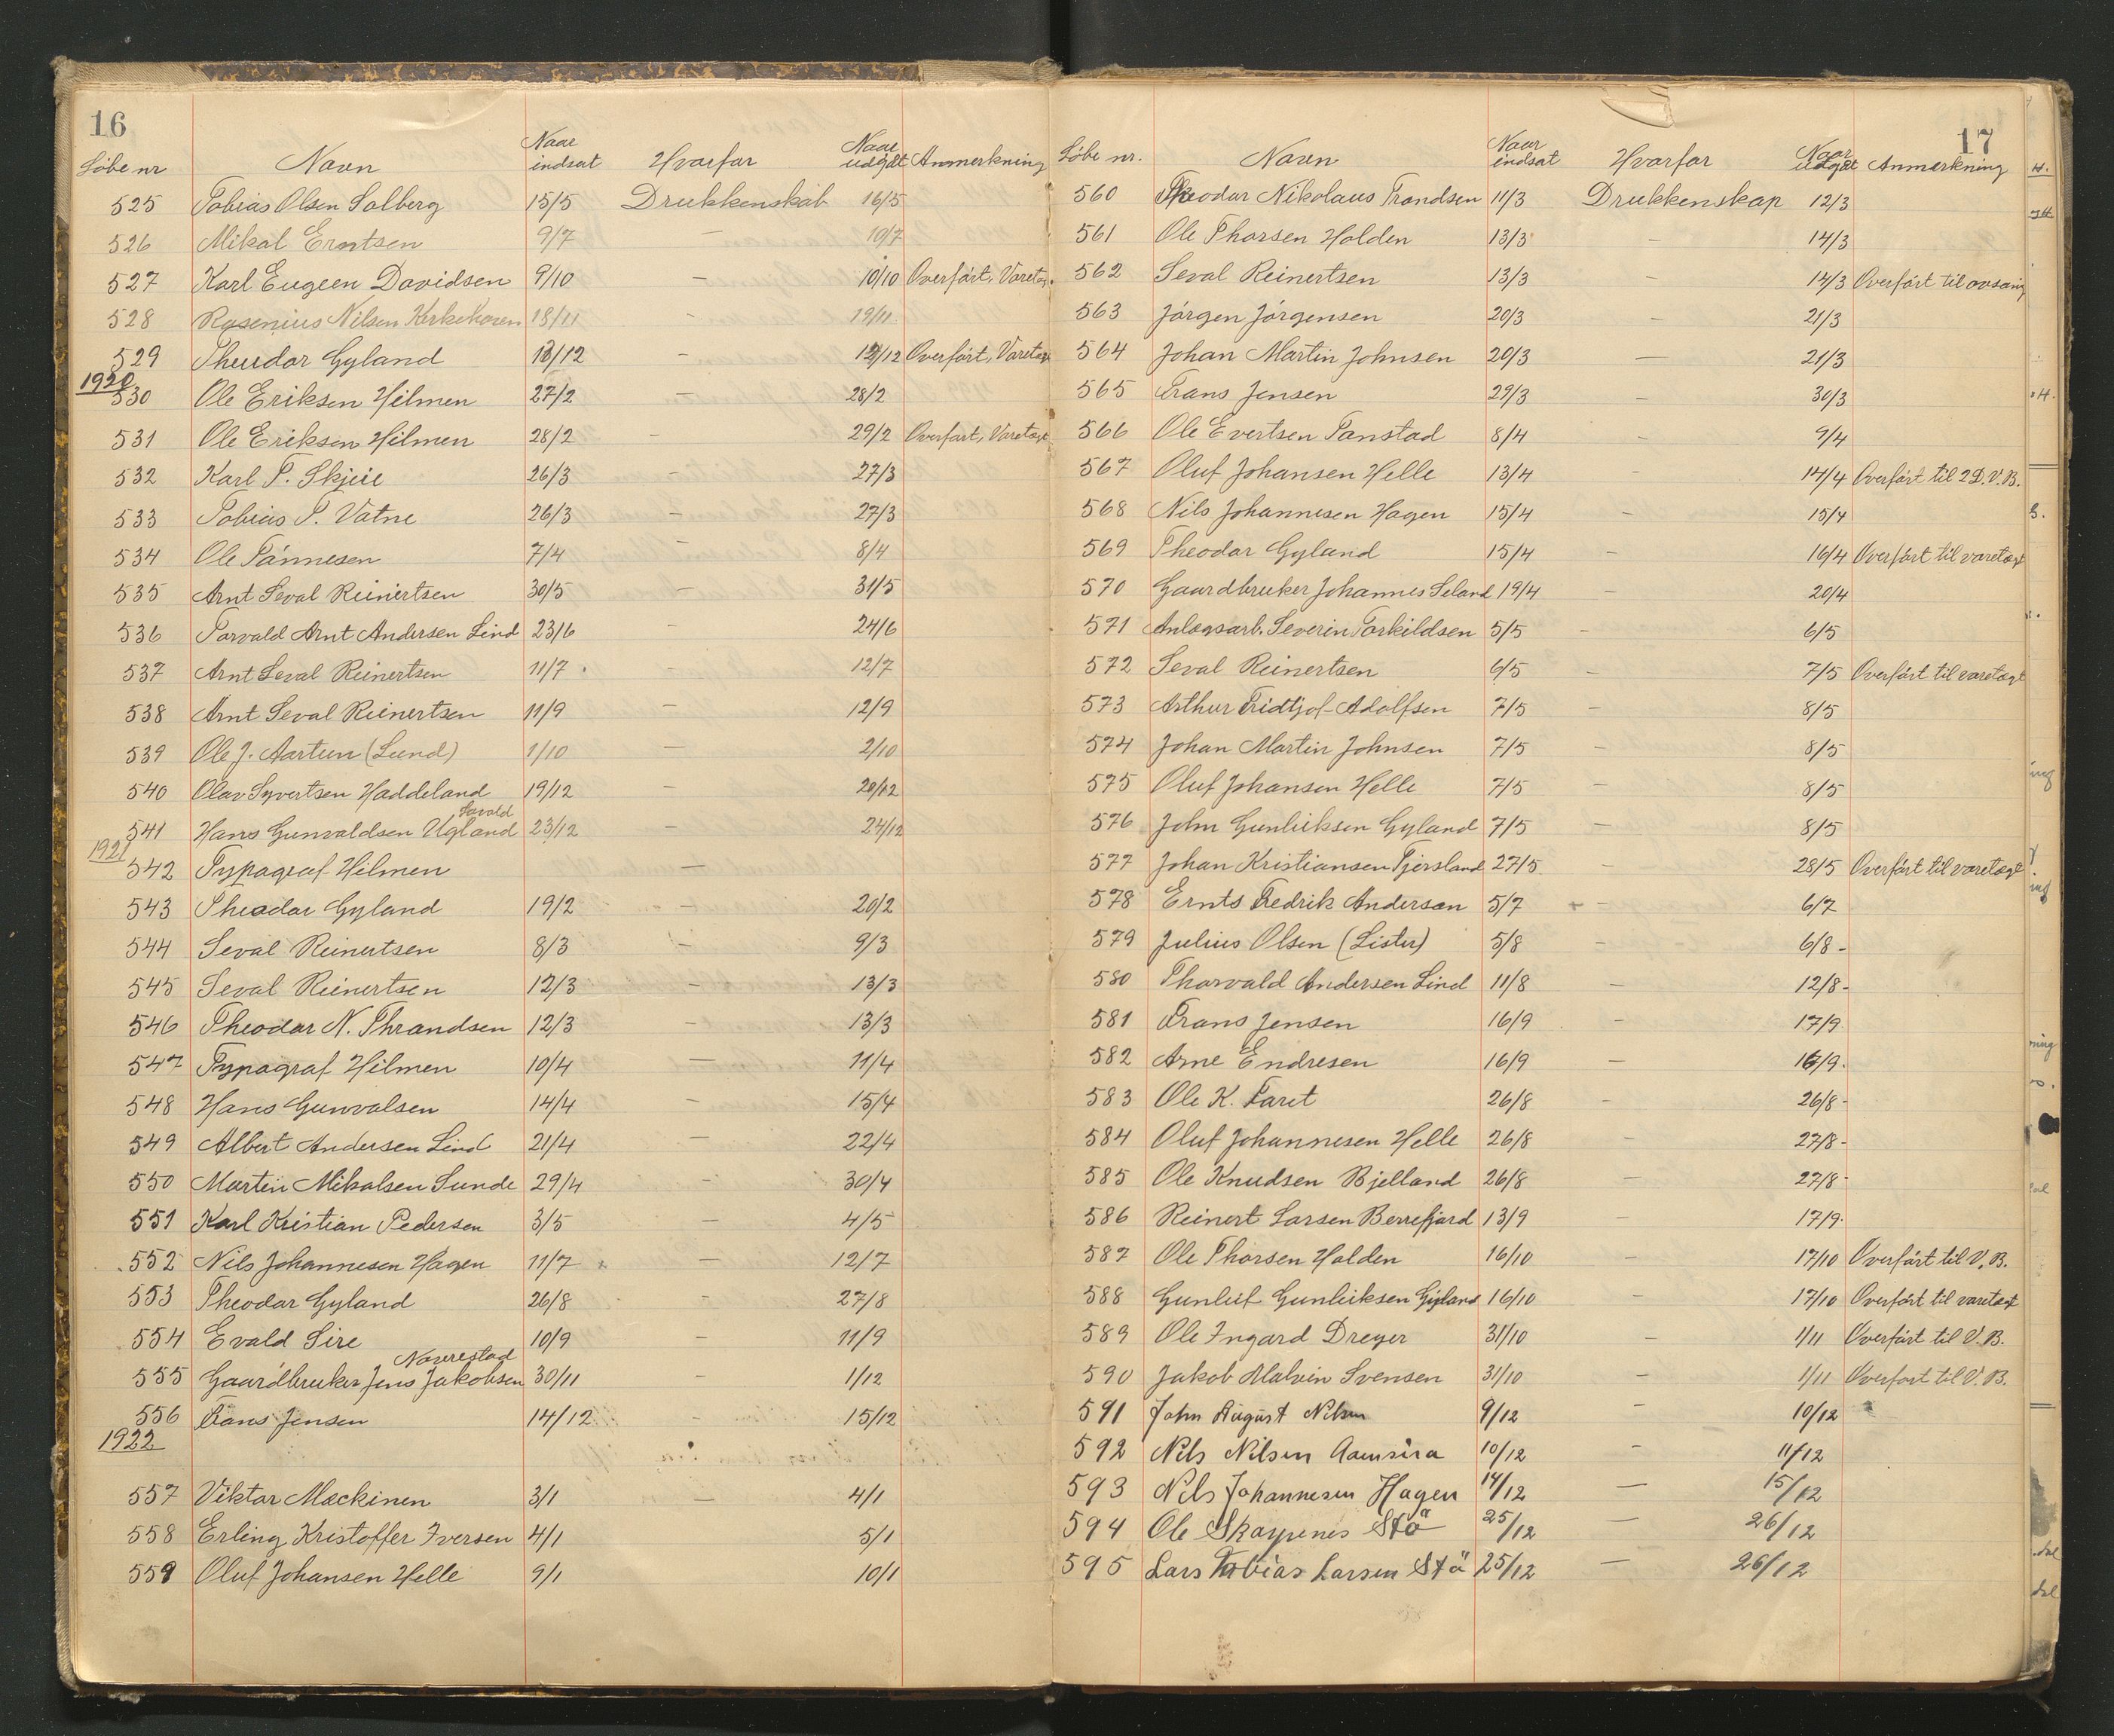 16
Löbe nr Navn Naar indsat Hvorfor Naar udgåt Anmerkning
525 Tobias Olsen Solberg 15/5 Drukkenskab 16/5
526 Mikal Erntsen 9/7 — 10/7
527 Karl Eugeen Davidsen 9/10 — 10/10 Overfört, Varetæ.
528 Rosenius Nilsen 18/11 - 19/11
529 Theodor Gyland 18/12 - 19/12 Overfört, Varetægt
1920
530 Ole Eriksen Hilmen 27/2 — 28/2
531 Ole Eriksen Hilmen 28/2 — 29/2 Overfört, Varetægt
532 Karl T. Skjeie 26/3 — 27/3
533 Tobias T. Vatne 26/3 — 27/3
534 Ole Tönnesen 7/4 — 8/4
535 Arnt Seval Reinertsen 30/5 — 31/5
536 Torvald Arnt Andersen Lind 23/6 — 24/6
537 Arnt Seval Reinertsen 11/7 — 12/7
538 Arnt Seval Reinertsen 11/9 — 12/9
539 Ole J. Aartun (Lund) 1/10 — 2/10
540 Olav Syvertsen Haddeland 19/12 — 20/12
541 Hans Gunvaldsen Ugland 23/12 — 24/12
1921
542 Typograf Hilmen —
543 Theodor Gyland 19/2 — 20/2
544 Seval Reinertsen 8/3 — 9/3
545 Seval Reinertsen 12/3 — 13/3
546 Theodor N. Thrandsen 12/3 — 13/3
547 Typograf Hilmen 10/4 — 11/4
548 Hans Gunvalsen 14/4 — 15/4
549 Albert Andersen Lind 21/4 — 22/4
550 Martin Mikalsen Sunde 29/4 - 30/4
551 Karl Kristian Pedersen 3/5 — 4/5
552 Nils Johannesen Hagen 11/7 — 12/7
553 Theodor Gyland 26/8 - 27/8
554 Evald Sire 10/9 — 11/9
Naverestad
555 Gaardbruker Jens Jakobsen 30/11 - 1/12
556 Frans Jensen 14/12 - 15/12
1922
557 Viktor Mackinen 3/1 — 4/1
558 Erling Kristoffer Iversen 4/1 5/1
559 Oluf Johansen Helle 9/1 10/1
17
Löbe nr. Navn Naar indsat Hvorfor Naar udgåt Anmerkning
560 Theodor Nikolaus Trondsen 11/3 Drukkenskap 12/3
561 Ole Thorsen Holden 13/3 — 14/3
562 Seval Reinertsen 13/3 — 14/3 Overfört til avsoning
563 Jörgen Jörgensen 20/3 — 21/3
564 Johan Martin Johnsen 20/3 — 21/3
565 Frans Jensen 29/3 — 30/3
566 Ole Evertsen Tanstad 8/4 - 9/4
567 Oluf Johansen Helle 13/4 - 14/4 Overfört til 2 D.V.B.
568 Nils Johannesen Hagen 15/4 — 15/4
569 Theodor Gyland 15/4 — 16/4 Overfört til varetægt
570 Gaardbruker Johannes Seland 19/4 — 20/4
571 Anlægsarb. Severin Torkildsen 5/5 — 6/5
572 Seval Reinertsen 6/5 — 7/5 Overfört til varetægt
573 Arthur Fridtjof Adolfsen 7/5 — 8/5
574 Johan Martin Johnsen 7/5 — 8/5
575 Oluf Johansen Helle 7/5 — 8/5
576 John Gunleiksen Gyland 7/5 — 8/5
577 Johan Kristiansen Tjersland 27/5 — 28/5 Overfört til varetægt
578 Ernts Fredrik Anderson 5/7 - 6/7
579 Julius Olsen (Lister) 5/8 — 6/8 -
580 Thorvald Andersen Lind 11/8 — 12/8 -
581 Frans Jensen 16/9 — 17/9
582 Arne Endresen 16/9 — 16/9.
583 Ole K. Faret 26/8 — 26/8 -
584 Oluf Johannesen Helle 26/8 — 27/8 -
585 Ole Knudsen Bjelland 26/8 — 27/8 -
586 Reinert Larsen Berrefjord 13/9 — 17/9.
587 Ole Thorsen Holden 16/10 - 17/10 Overfört til V.B.
588 Gunleif Gunleiksen Gyland 16/10 — 17/10 Overfört til varetægt
589 Ole Ingard Dreyer 31/10 — 1/11 Overfört til V.B.
590 Jakob Malvin Svensen 31/10 — 1/11 Overfört til V.B.
591 John August Nilsen 9/12 — 10/12
592 Nils Nilsen Aamsira 10/12 - 11/12
593 Nils Johannesen Hagen 14/12 — 15/12
594 Ole Stö 25/12 — 26/12
595 Lars Tobias Larsen Stö 25/12 — 26/12